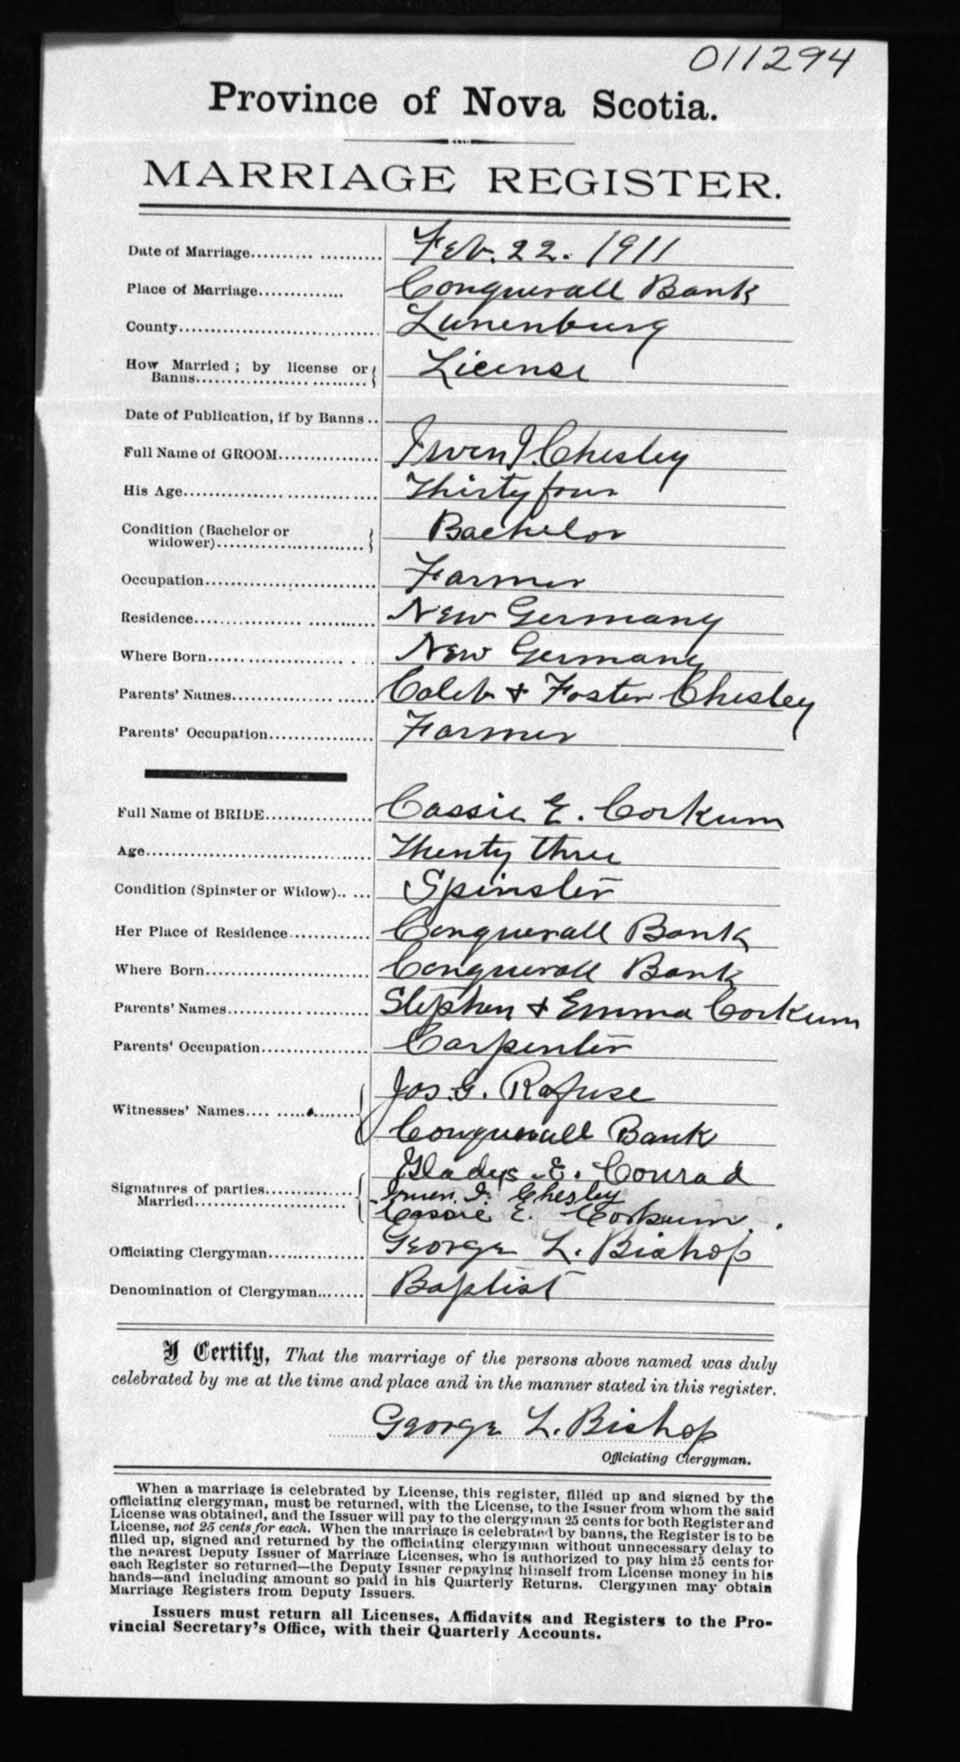 011294
Province of Nova Scotia.
MARRIAGE REGISTER.
Date of Marriage.......... ........... Feb. 22. 1911
Place of Marriage............. Conquerall Bank
County............................. Lunenburg
How Married; by license or
Banns.................. ......... License
Date of Publication, if by Banns..
Full Name of GROOM............... Irven I. Chesley
His Age............................. Thirty four
Condition (Bachelor or
widower)........................ Bachelor
Occupation......................... Farmer
Residence................ .......... New Germany
Where Born.................... . .. New Germany
Parents' Names............... ...... Caleb & Foster Chesley
Parents' Occupation................ Farmer
Full Name of BRIDE................ Cassie E. Corkum
Age.................................. Twenty three
Condition (Spinster or Widow).. ... Spinster
Her Place of Residence............ Conquerall Bank
Where Born........................ Conquerall Bank
Parents' Names............ ......... Stephen & Emma Corkum
Parents' Occupation................ Carpenter
Jos. G. Rafuse
Witnesses' Names.... .............
Conquerall Bank
Gladys E. Conrad
Signatures of parties............. Irven I. Chesley
Married......................... Cassie E. Corkum.
Officiating Clergyman.............. George L. Bishop
Denomination of Clergyman........ Baptist
I Certify, That the marriage of the persons above named was duly
celebrated by me at the time and place and in the manner stated in this register.
George L. Bishop
Officiating Clergyman.
When a marriage is celebrated by License, this register, filled up and signed by the
officiating clergyman, must be returned, with the License, to the Issuer from whom the said
License was obtained, and the Issuer will pay to the clergyman 25 cents for both Register and
License, not 25 cents for each. When the marriage is celebrated by banns, the Register is to be
filled up, signed and returned by the officiating clergyman without unnecessary delay to
the nearest Deputy Issuer of Marriage Licenses, who is authorized to pay him 25 cents for
each Register so returned—the Deputy Issuer repaying himself from License money in his
hands—and including amount so paid in his Quarterly Returns. Clergymen may obtain
Marriage Registers from Deputy Issuers.
Issuers must return all Licenses, Affidavits and Registers to the Pro-
vincial Secretary's Office, with their Quarterly Accounts.